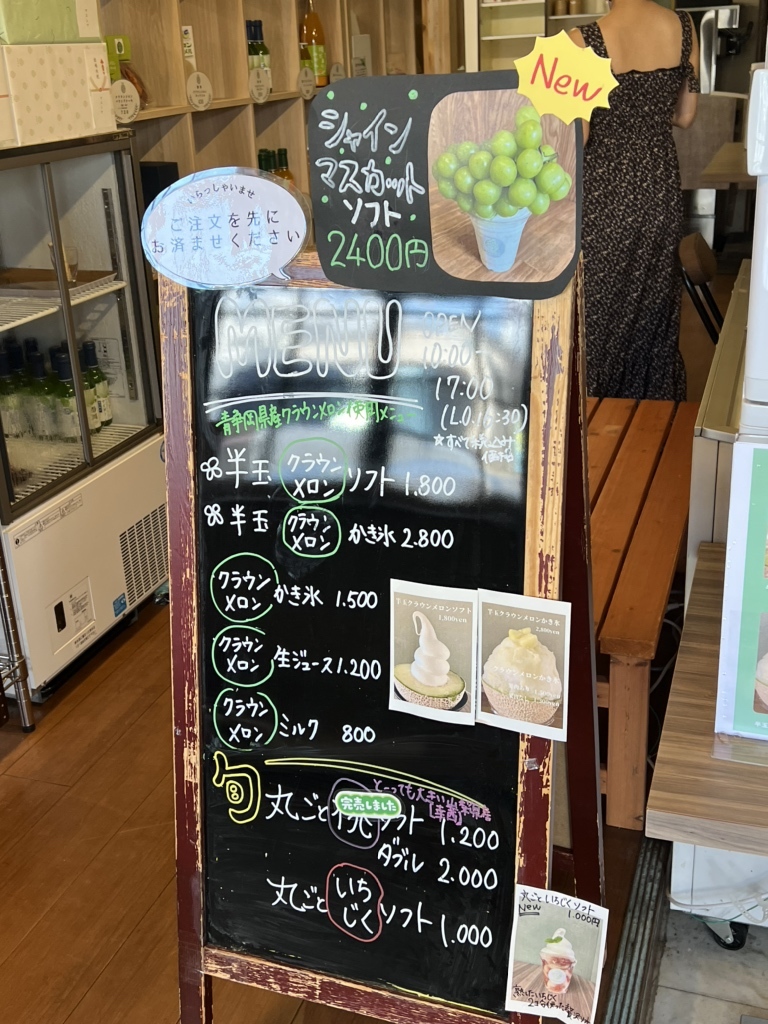 New
シャイン
マスカット
ソフト
2400円
いらっしゃいませ
ご注文を先に
お済ませください
MENU
OPEN
10:00-
17:00
青静岡県産クラウンメロン使用メニュー
☆すべて税込み
価格
半玉 クラウンメロン ソフト 1.800
半玉 クラウンメロン かき氷 2.800
クラウンメロン かき氷 1.500
クラウンメロン 生ジュース 1.200
クラウンメロン ミルク 800
半玉クラウンメロンソフト
1,800yen
半玉クラウンメロンかき氷
2,800yen
旬
とーっても大きい山梨県産
完売しました
丸ごと桃ソフト 1.200
ダブル 2.000
丸ごといちじくソフト 1.000
丸ごといちじくソフト
New 1.000円